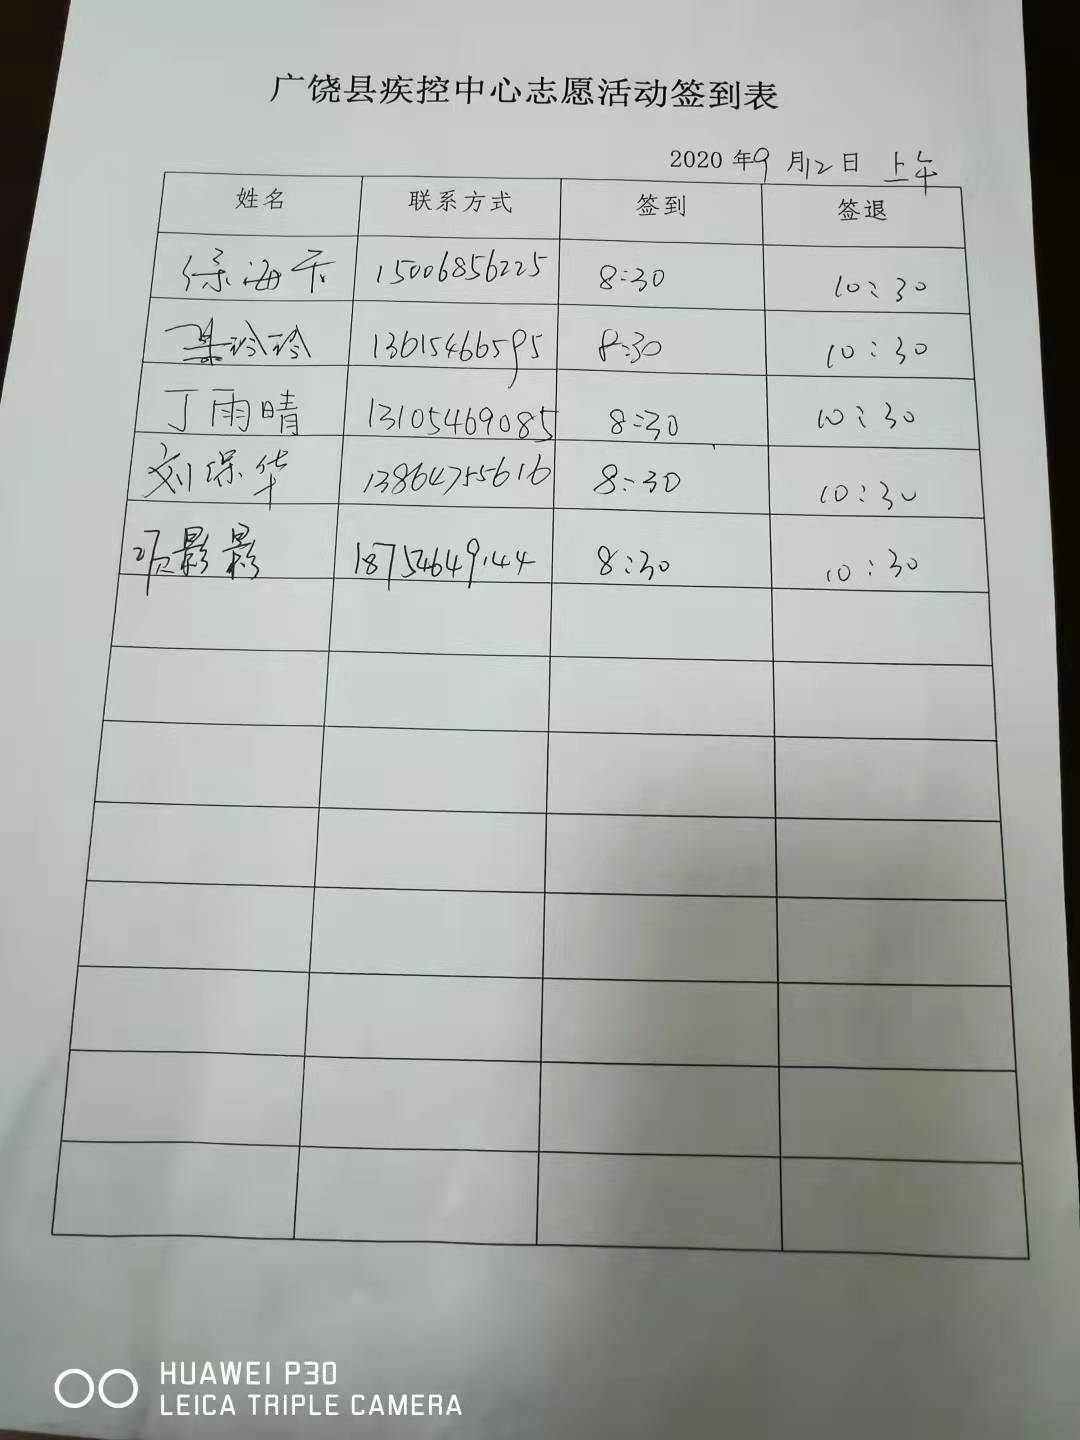 广饶县疾控中心志愿活动签到表
2020 年9 月12日 上午
姓名 联系方式 签到 签退
海 15006856225 8:30 10:30
玲玲 13615466595 8:30 10:30
丁雨晴 13105469085 8:30 10:30
刘保华 13864755616 8:30 10:30
项影影 18754649144 8:30 10:30
HUAWEI P30
LEICA TRIPLE CAMERA